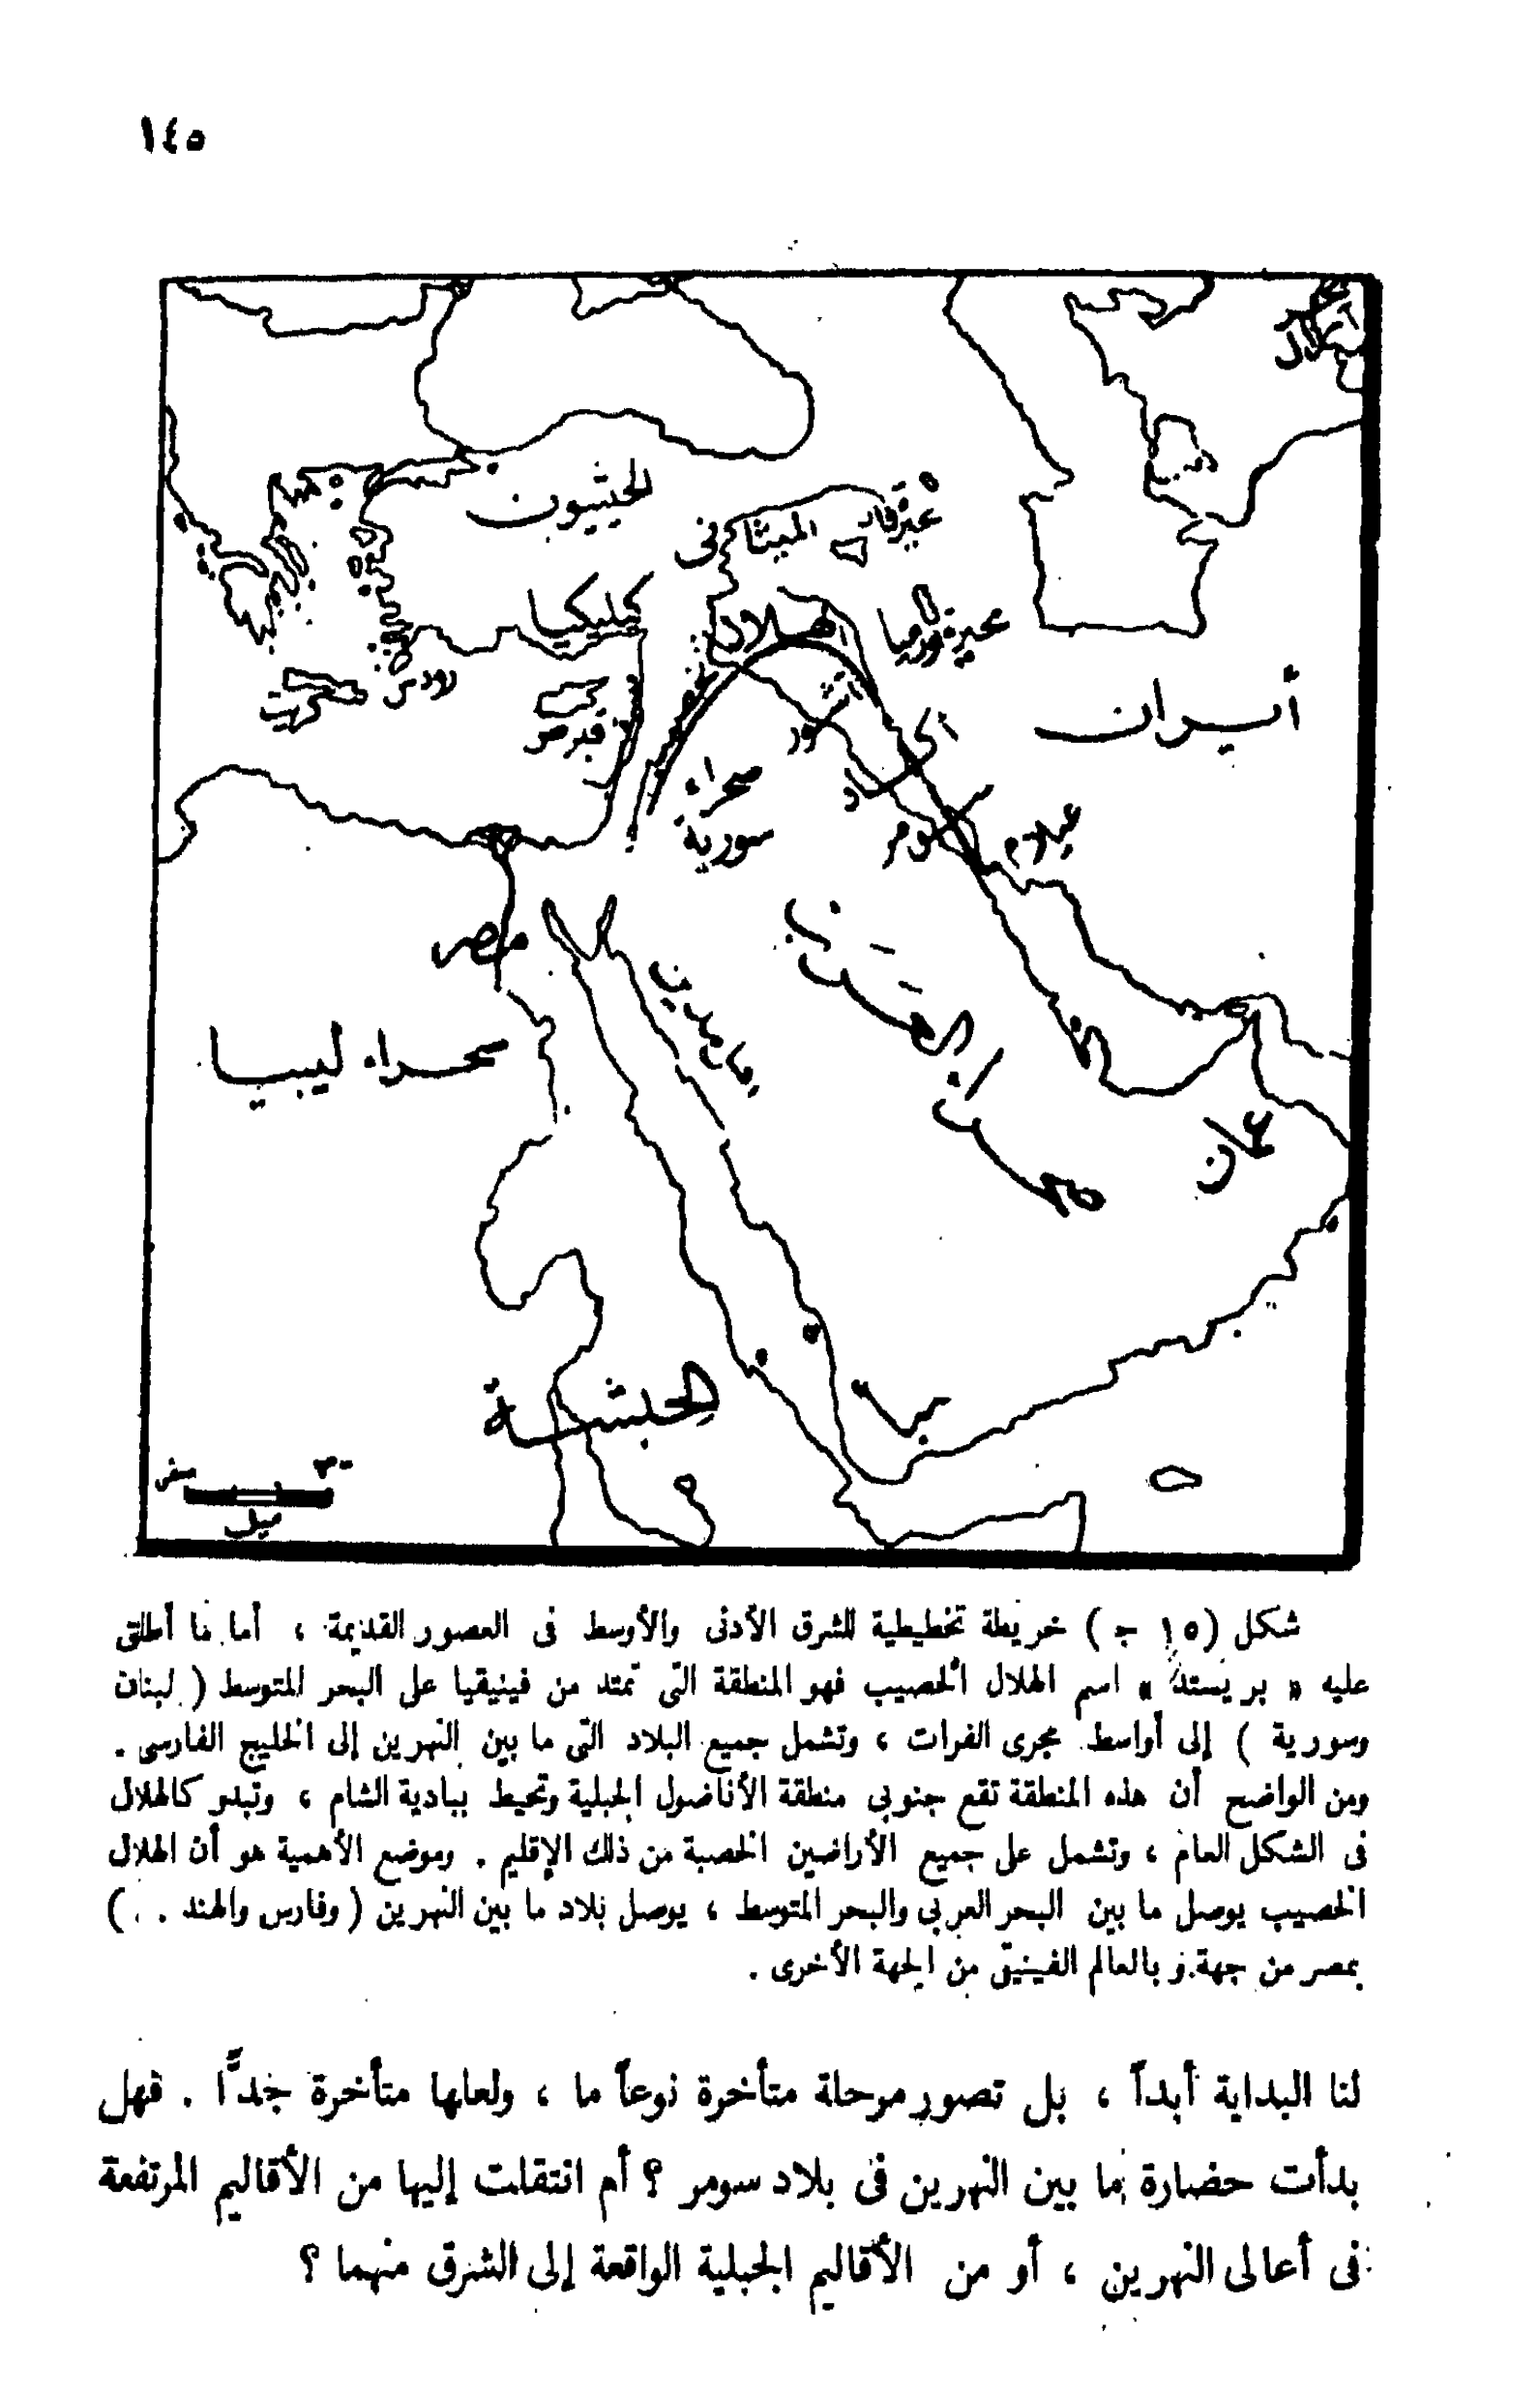 ١٤٥
آرال
الحيثيون
بحيرة فان
الميتانى
كيليكيا
الهلال
بحيرة أورميا
رودس
كريت
قبرص
آشور
أيران
أكاد
صحراء
سورية
سومر
عيلام
مصر
مدين
صحراء ليبيا
بلاد العرب
عمان
الحبشة
سبأ
صفر ٣٠٠
ميل
شكل (١٥ ج) خريطة تخطيطية للشرق الأدنى والأوسط فى العصور القديمة ، أما ما أطلق
عليه « بريستد » اسم الهلال الخصيب فهو المنطقة التى تمتد من فينيقيا على البحر المتوسط ( لبنان
وسورية ) إلى أواسط مجرى الفرات ، وتشمل جميع البلاد التى ما بين النهرين إلى الخليج الفارسى .
ومن الواضح أن هذه المنطقة تقع جنوبى منطقة الأناضول الجبلية وتحيط ببادية الشام ، وتبدو كالهلال
فى الشكل العام ، وتشمل على جميع الأراضين الخصبة من ذلك الإقليم . وموضع الأهمية هو أن الهلال
الخصيب يوصل ما بين البحر العربى والبحر المتوسط ، يوصل بلاد ما بين النهرين ( وفارس والهند . . )
بمصر من جهة و بالعالم الفينيقى من الجهة الأخرى .
لنا البداية أبداً ، بل تصور مرحلة متأخرة نوعاً ما ، ولعلها متأخرة جدًّا . فهل
بدأت حضارة ما بين النهرين فى بلاد سومر ؟ أم انتقلت إليها من الأقاليم المرتفعة
فى أعالى النهرين ، أو من الأقاليم الجبلية الواقعة إلى الشرق منهما ؟